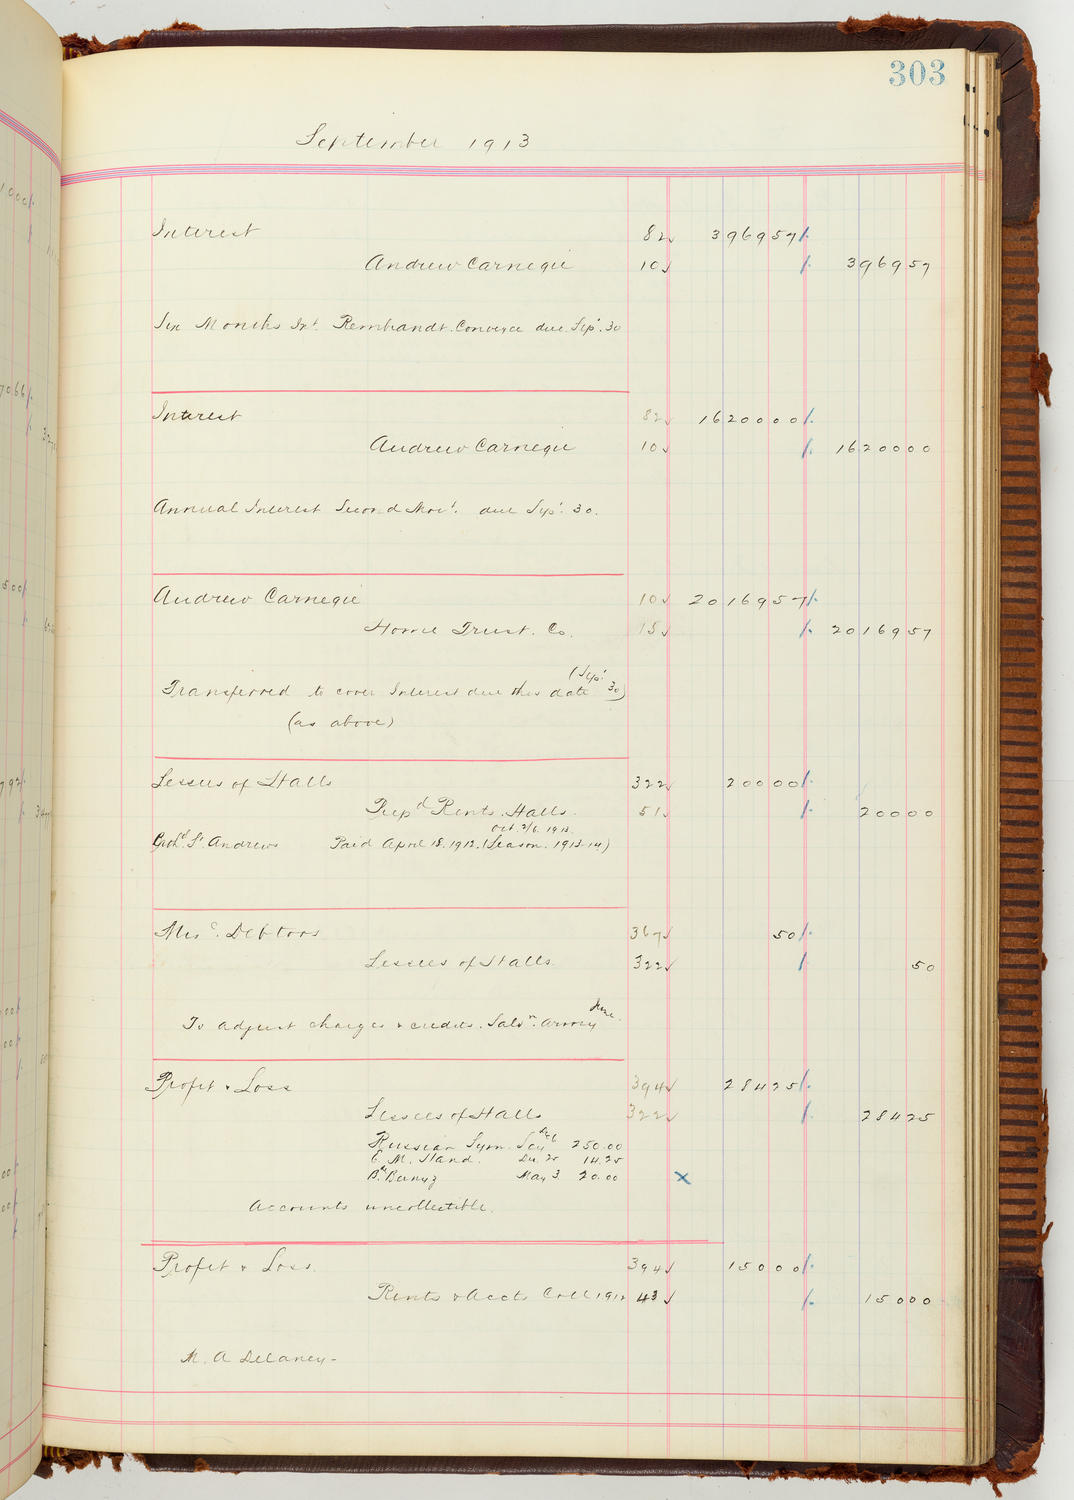 303
September 1913
Interest 82 396957
Andrew Carnegie 10 396957
Six Months Int. Rembrandt. Converse due Sep. 30
Interest 82 1620000
Andrew Carnegie 10 1620000
Annual Interest Second Mort. due Sep. 30.
Andrew Carnegie 10 2016957
Home Trust. Co. 15 2016957
(Sep.
Transferred to cover Interest due this date 30)
(as above)
Lessees of Halls 322 20000
Prepd Rents. Halls. 51 20000
Oct. 2/6. 1913.
St. Andrews Paid April 18. 1912. (Season. 1913-14)
Misc. Debtors 367 50
Lessees of Halls 322 50
June.
To adjust charges & credits. Salvn. Army
Profit & Loss 394 28425
Lessees of Halls 322 28425
Russian Sym. Socy 250.00
E. M. Hand. Du. 25 14.25
May 3 20.00
Accounts uncollectible.
Profit & Loss. 394 15000
Rents & Accts Coll 1912 43 15000
M. A Delaney-